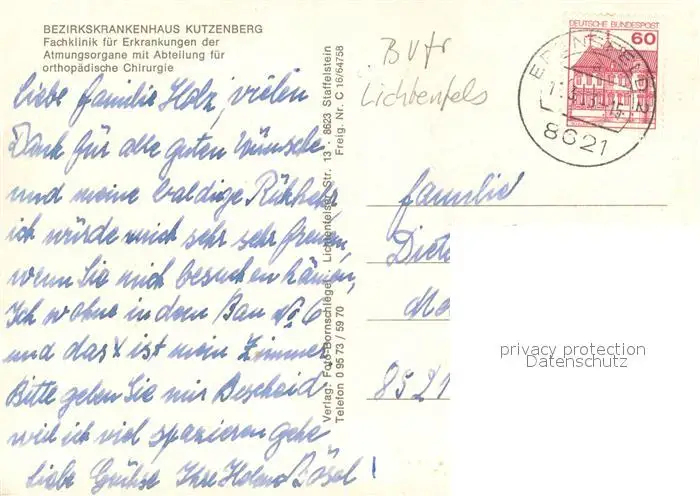 BEZIRKSKRANKENHAUS KUTZENBERG
Fachklinik für Erkrankungen der
Atmungsorgane mit Abteilung für
orthopädische Chirurgie
Liebe Familie Holz, vielen
Dank für alle guten Wünsche
und meine baldige Rükkehr
ich würde mich sehr sehr freuen,
wenn Sie mich besuchen kämen,
Ich wohne in dem Bau No 6
und das X ist mein Zimmer
Bitte geben Sie mir Bescheid
weil ich viel spazieren gehe
Liebe Grühse Ihre Helene Bösel!
Verlag: Foto-Bornschlegel · Lichtenfelser Str. 13 · 8623 Staffelstein
Telefon 0 95 73 / 59 70
Freig. Nr. C 16/64758
Lichtenfels
DEUTSCHE BUNDESPOST
60
8621
Familie
Diete
8521
privacy protection
Datenschutz